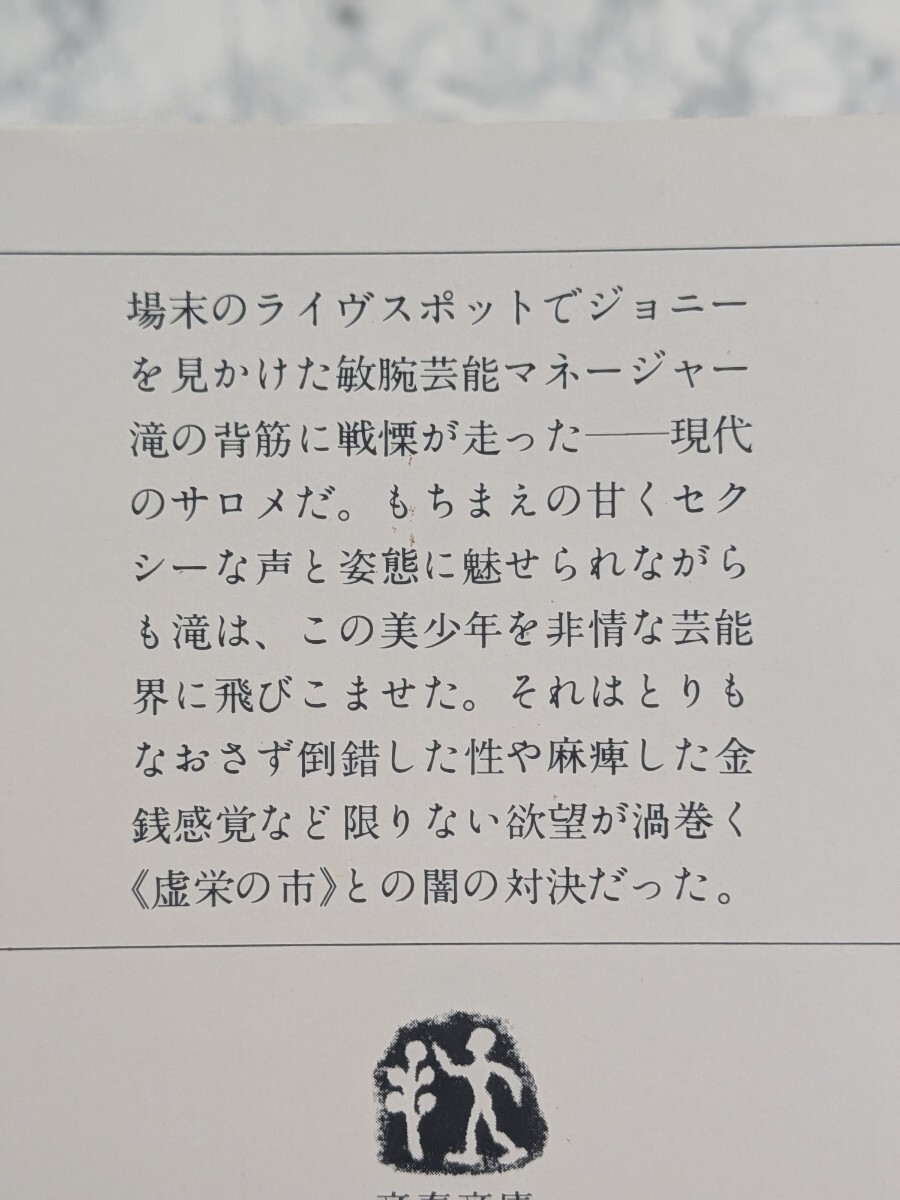 場末のライヴスポットでジョニー
を見かけた敏腕芸能マネージャー
滝の背筋に戦慄が走った――現代
のサロメだ。もちまえの甘くセク
シーな声と姿態に魅せられながら
も滝は、この美少年を非情な芸能
界に飛びこませた。それはとりも
なおさず倒錯した性や麻痺した金
銭感覚など限りない欲望が渦巻く
《虚栄の市》との闇の対決だった。
文春文庫